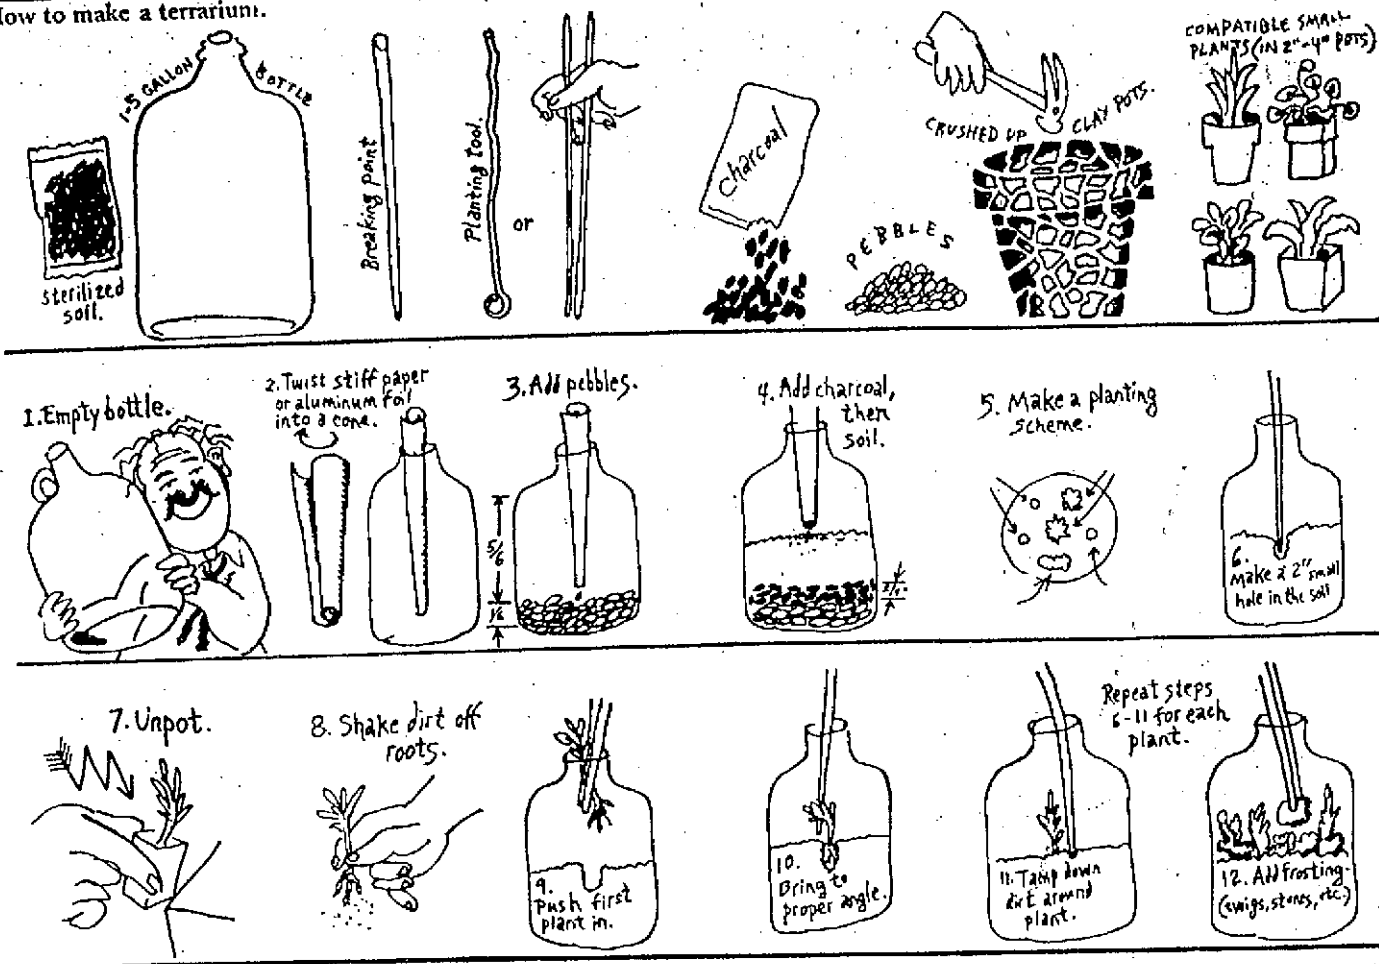 How to make a terrarium.
1-5 GALLON BOTTLE
sterilized
soil.
Breaking point
Planting tool.
or
Charcoal
PEBBLES
CRUSHED UP CLAY POTS.
COMPATIBLE SMALL
PLANTS (IN 2"-4" POTS)
1. Empty bottle.
2. Twist stiff paper
or aluminum foil
into a cone.
3. Add pebbles.
5/6
1/6
4. Add charcoal,
then
soil.
5. Make a planting
scheme.
6.
Make a 2" small
hole in the soil
7. Unpot.
8. Shake dirt off
roots.
9.
Push first
plant in.
10.
Bring to
proper angle.
11. Tamp down
dirt around
plant.
Repeat steps
6-11 for each
plant.
12. Add frosting.
(twigs, stones, etc.)